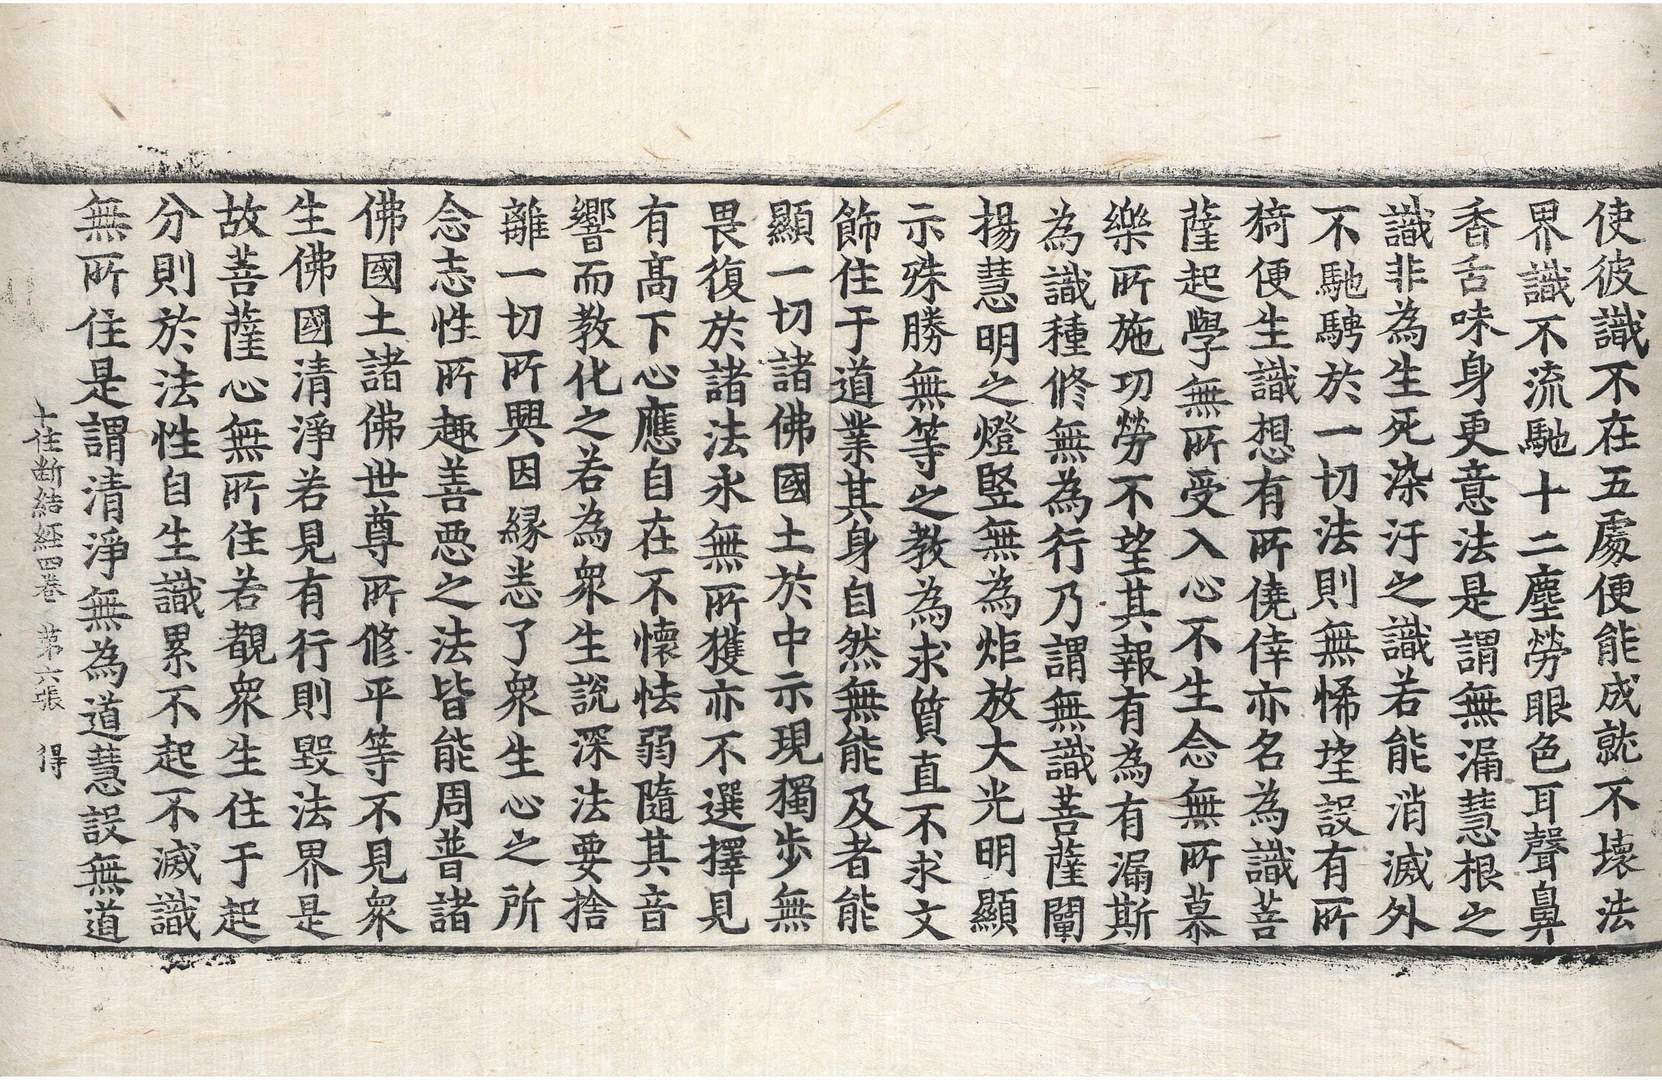 使彼識不在五處便能成就不壞法
界識不流馳十二塵勞眼色耳聲鼻
香舌味身更意法是謂無漏慧根之
識非為生死染汙之識若能消滅外
不馳騁於一切法則無悕望設有所
猗便生識想有所僥倖亦名為識菩
薩起學無所受入心不生念無所慕
樂所施功勞不望其報有為有漏斯
為識種修無為行乃謂無識菩薩闡
揚慧明之燈竪無為炬放大光明顯
示殊勝無等之教為求質直不求文
飾住于道業其身自然無能及者能
顯一切諸佛國土於中示現獨步無
畏復於諸法永無所獲亦不選擇見
有高下心應自在不懷怯弱隨其音
響而教化之若為眾生說深法要捨
離一切所興因緣悉了眾生心之所
念志性所趣善惡之法皆能周普諸
佛國土諸佛世尊所修平等不見眾
生佛國清淨若見有行則毀法界是
故菩薩心無所住若覩眾生住于起
分則於法性自生識累不起不滅識
無所住是謂清淨無為道慧設無道
十住斷結經四卷 第六張 得